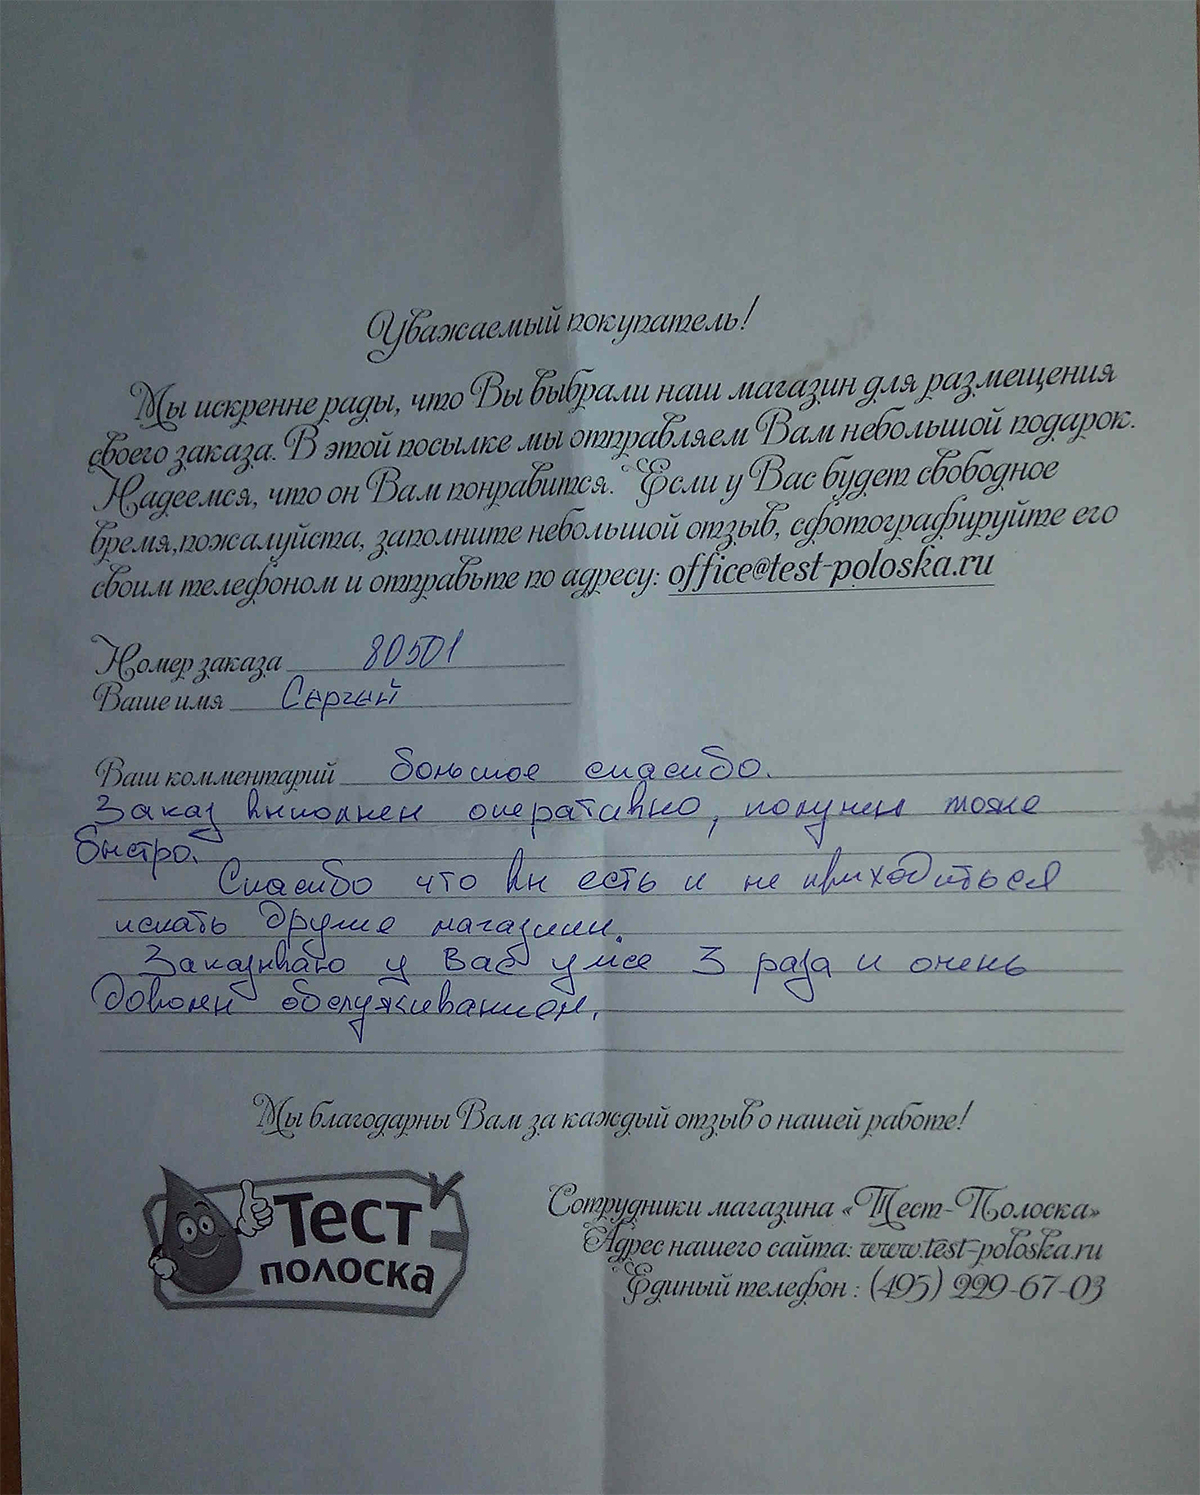 Уважаемый покупатель!
Мы искренне рады, что Вы выбрали наш магазин для размещения
своего заказа. В этой посылке мы отправляем Вам небольшой подарок.
Надеемся, что он Вам понравится. Если у Вас будет свободное
время,пожалуйста, заполните небольшой отзыв, сфотографируйте его
своим телефоном и отправьте по адресу: office@test-poloska.ru
Номер заказа 80501
Ваше имя Сергей
Ваш комментарий большое спасибо.
Заказ выполнен оперативно, получен тоже
быстро.
Спасибо что вы есть и не приходиться
искать другие магазины.
Заказываю у Вас уже 3 раза и очень
доволен обслуживанием.
Мы благодарны Вам за каждый отзыв о нашей работе!
Тест
полоска
Сотрудники магазина «Тест-Полоска»
Адрес нашего сайта: www.test-poloska.ru
Единый телефон : (495) 229-67-03